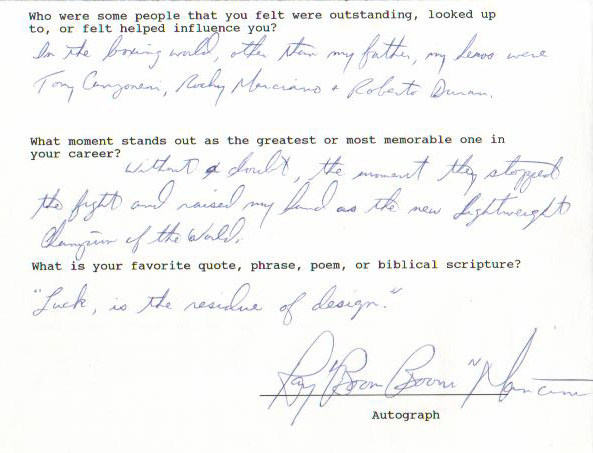 Who were some people that you felt were outstanding, looked up
to, or felt helped influence you?
In the boxing world, other than my father, my heros were
Tony Canzoneri, Rocky Marciano + Roberto Duran.
What moment stands out as the greatest or most memorable one in
your career?
Without a doubt, the moment they stopped
the fight and raised my hand as the new Lightweight
Champion of the World.
What is your favorite quote, phrase, poem, or biblical scripture?
"Luck, is the residue of design."
Ray "Boom Boom" Mancini
Autograph